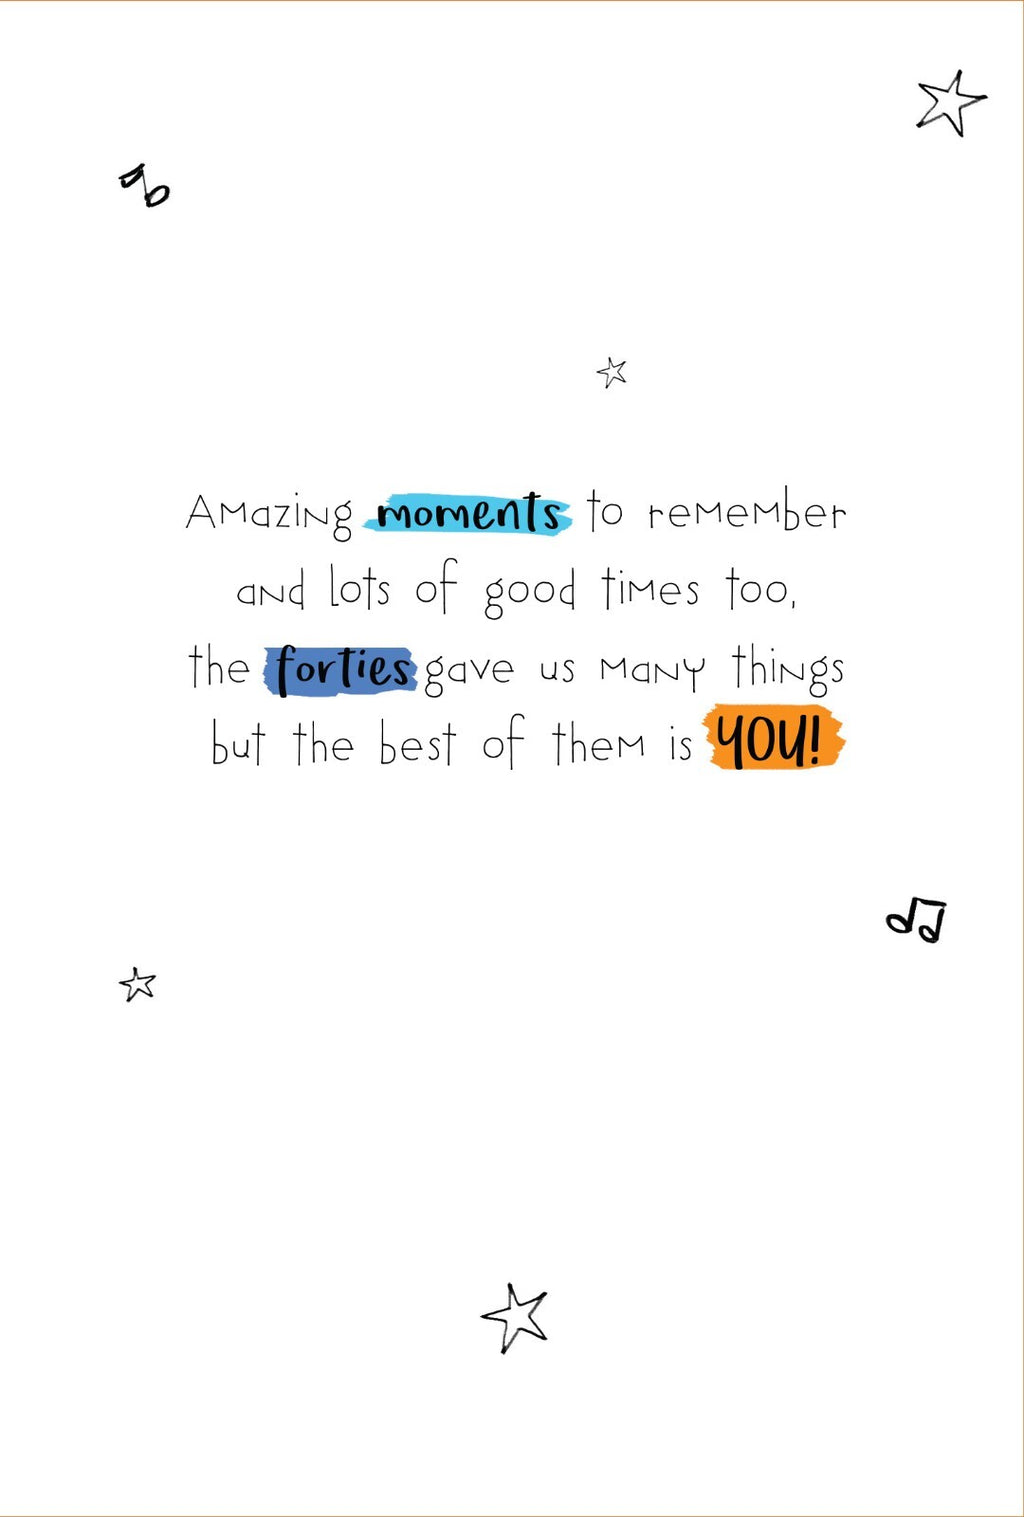 Amazing moments to remember
and lots of good times too,
the forties gave us many things
but the best of them is YOU!